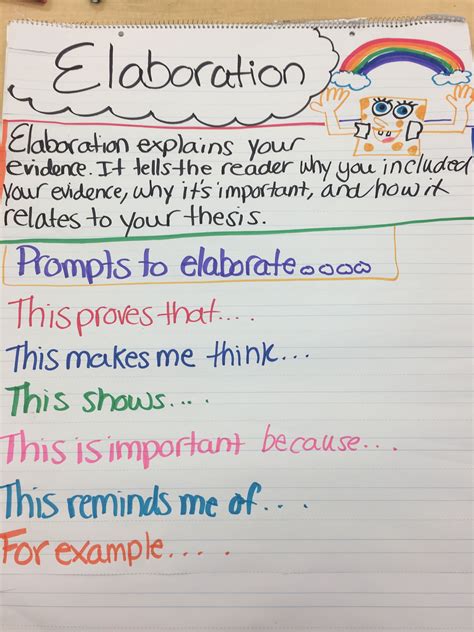 Elaboration
Elaboration explains your
evidence. It tells the reader why you included
your evidence, why it's important, and how it
relates to your thesis.
Prompts to elaborate....
This proves that....
This makes me think...
This shows....
This is important because....
This reminds me of....
For example....